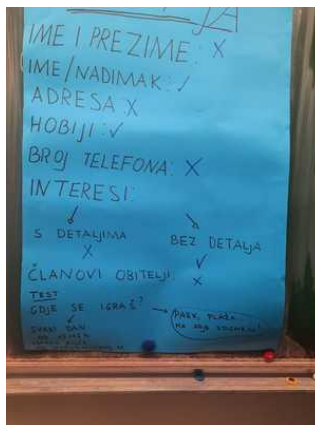 JA
IME I PREZIME: X
IME/NADIMAK: ✓
ADRESA X
HOBIJI: ✓
BROJ TELEFONA: X
INTERESI:
S DETALJIMA
X
BEZ DETALJA
✓
ČLANOVI OBITELJI: X
TEST
GDJE SE IGRAŠ?
PARK, PLAŽA
SVAKI DAN